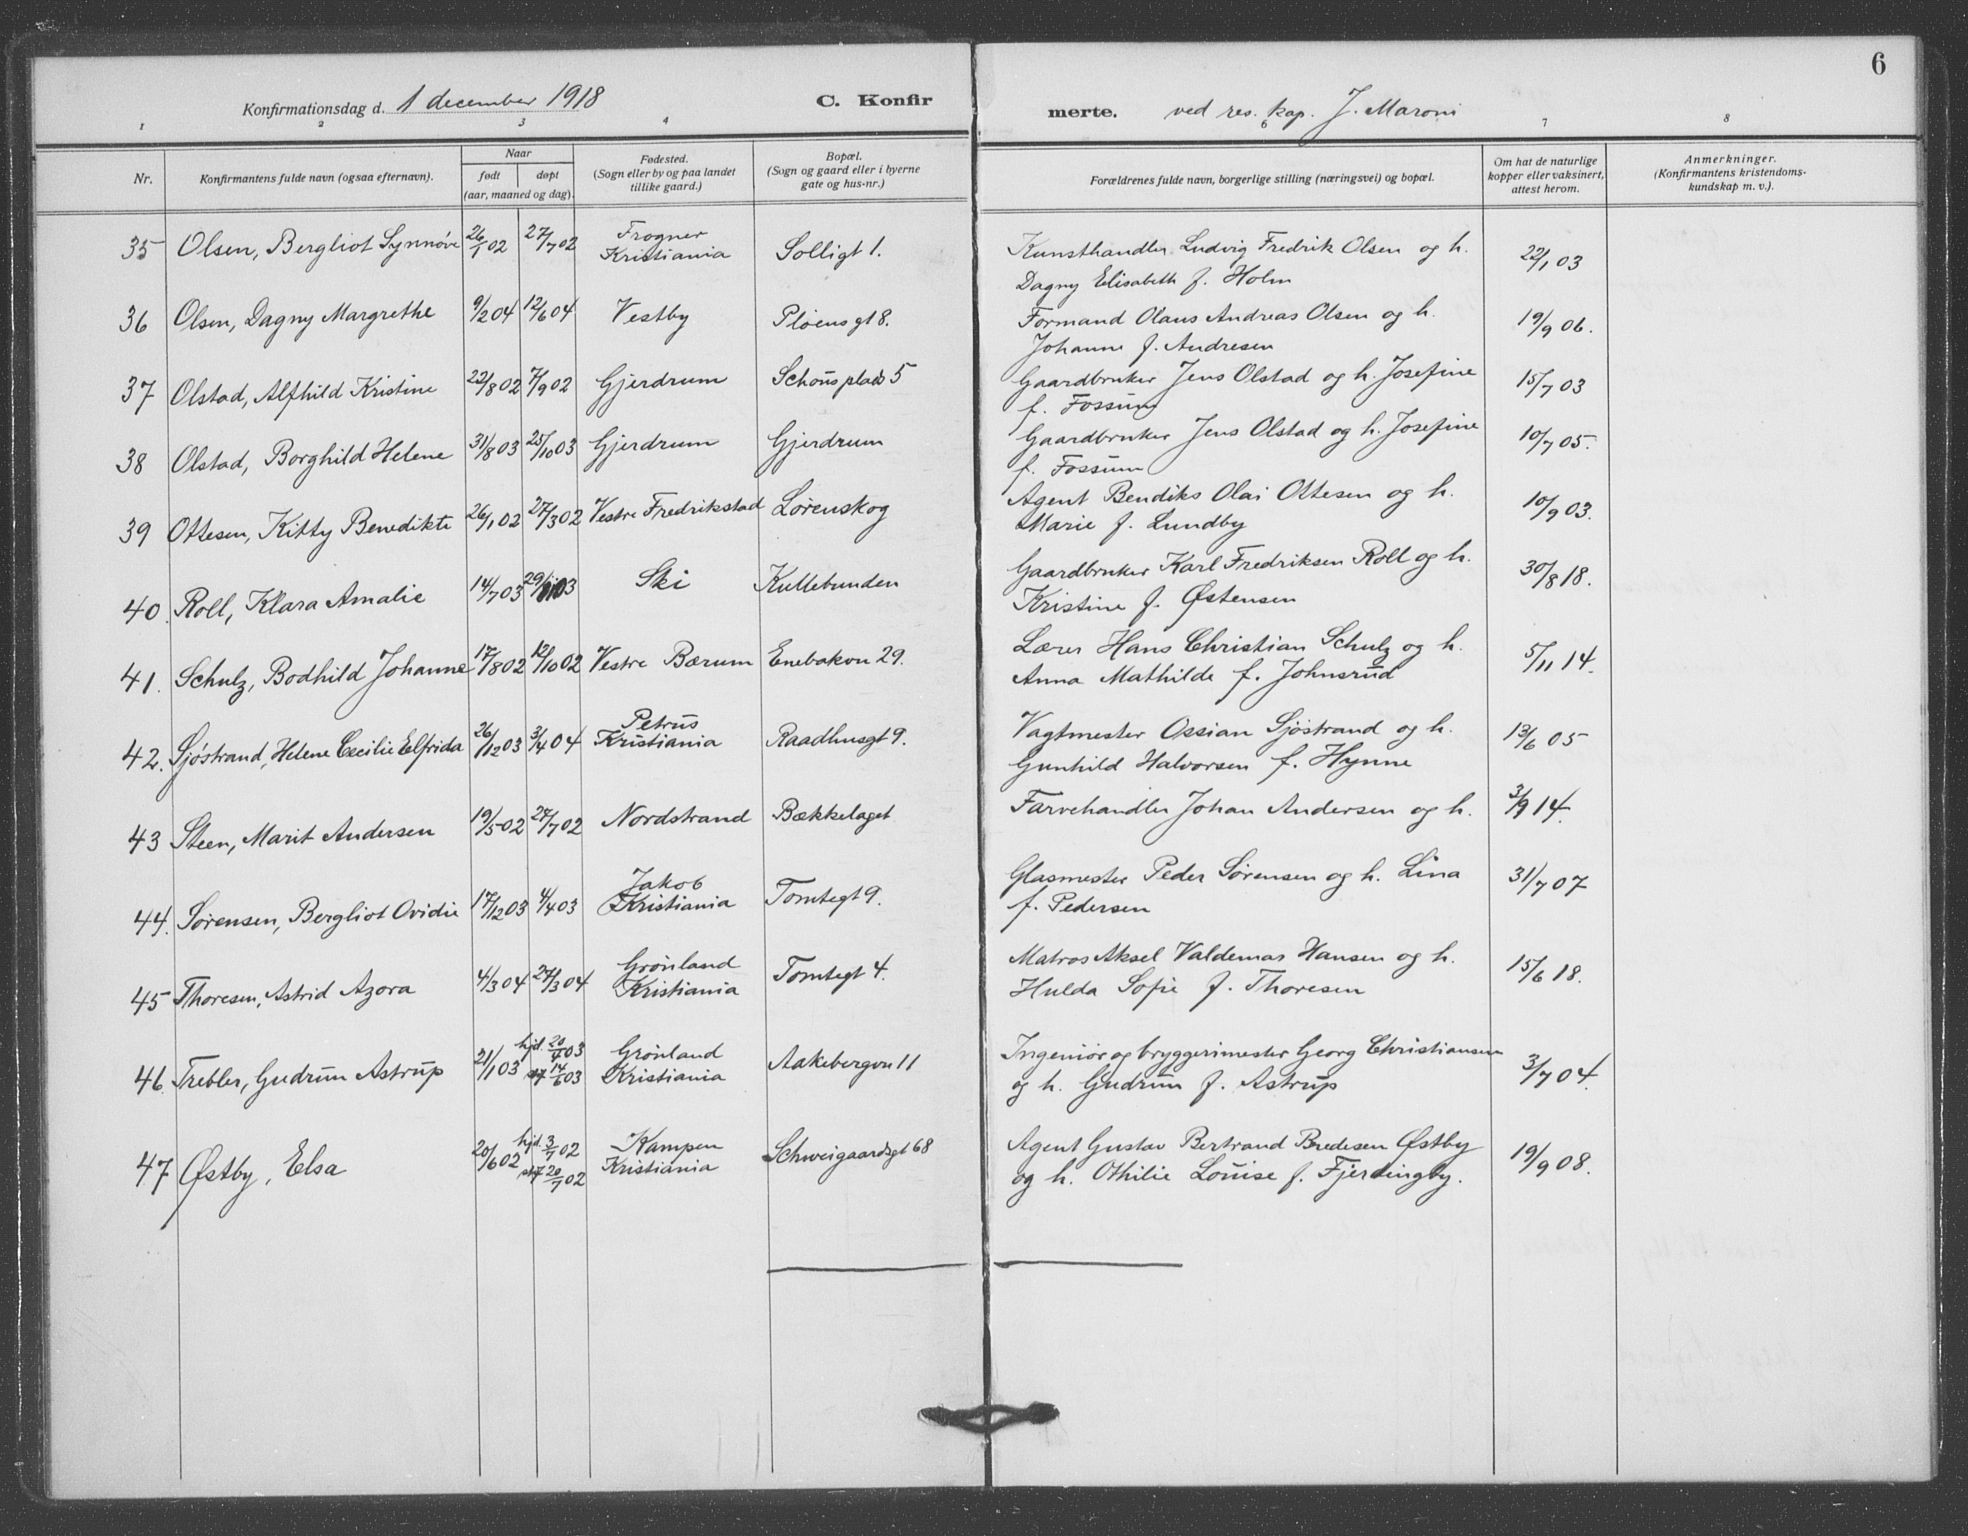 6
Konfirmationsdag d. 1 december 1918 C. Konfir merte. ved res. kap. J. Maroni
1 2 3 4 6 7 8
Nr. Konfirmantens fulde navn (ogsaa efternavn). Naar født døpt (aar, maaned og dag). Fødested. (Sogn eller by og paa landet tillike gaard.) Bopæl. (Sogn og gaard eller i byerne gate og hus-nr.) Forældrenes fulde navn, borgerlige stilling (næringsvei) og bopæl. Om hat de naturlige kopper eller vaksinert, attest herom. Anmerkninger. (Konfirmantens kristendoms- kundskap m. v.).
35 Olsen, Bergliot Synnøve 26/1 02 27/7 02 Frogner Kristiania Solligt 1. Kunsthandler Ludvig Fredrik Olsen og h. 22/1 03
Dagny Elisabeth f. Holm
36 Olsen, Dagny Margrethe 9/2 04 12/6 04 Vestby Pløens gt 8. Formand Olaus Andreas Olsen og h. 19/9 06.
Johanne f. Andresen
37 Olstad, Alfhild Kristine 22/8 02 7/9 02 Gjerdrum Schous plads 5 Gaardbruker Jens Olstad og h. Josefine 15/7 03
f. Fossum
38 Olstad, Borghild Helene 31/8 03 25/10 03 Gjerdrum Gjerdrum Gaardbruker Jens Olstad og h. Josefine 10/7 05.
f. Fossum
39 Ottesen, Kitty Benedikte 26/1 02 27/3 02 Vestre Fredrikstad Lørenskog Agent Bendiks Olai Ottesen og h. 10/9 03.
Marie f. Lundby
40. Roll, Klara Amalie 14/7 03 29/ 03 Ski Kullebunden Gaardbruker Karl Fredriksen Roll og h. 30/8 18.
Kristine f. Østensen
41. Schulz, Bodhild Johanne 17/8 02 12/10 02 Vestre Bærum Enebakvn 29. Lærer Hans Christian Schulz og h. 5/11 14.
Anna Mathilde f. Johnsrud
42. Sjøstrand, Helene Cecilie Elfrida 26/12 03 3/4 04 Petrus Kristiania Raadhusgt 9. Vagtmester Ossian Sjøstrand og h. 13/6 05
Gunhild Halvorsen f. Hynne
43 Steen, Marit Andersen 19/5 02 27/7 02 Nordstrand Bækkelaget Farvehandler Johan Andersen og h. 3/9 14.
44. Sørensen, Bergliot Ovidie 17/12 03 4/4 03 Jakob Kristiania Tomtegt 9. Glasmester Peder Sørensen og h. Lina 31/7 07
f. Pedersen
45 Thoresen, Astrid Azora 4/3 04 27/3 04 Grønland Kristiania Tomtegt 4. Matros Aksel Valdemar Hansen og h. 15/6 18.
Hulda Sofie f. Thoresen
46. Trebler, Gudrun Astrup 21/1 03 hjd. 20/4 03 st 14/6 03 Grønland Kristiania Aakebergvn 11 Ingeniør og bryggerimester Georg Christiansen 3/7 04.
og h. Gudrun f. Astrup
47 Østby, Elsa 20/6 02 hjd. 3/7 02 st 20/7 02 Kampen Kristiania Schweigaardsgt 68 Agent Gustav Bertrand Bredesen Østby 19/9 08.
og h. Othilie Louise f. Fjerdingby.